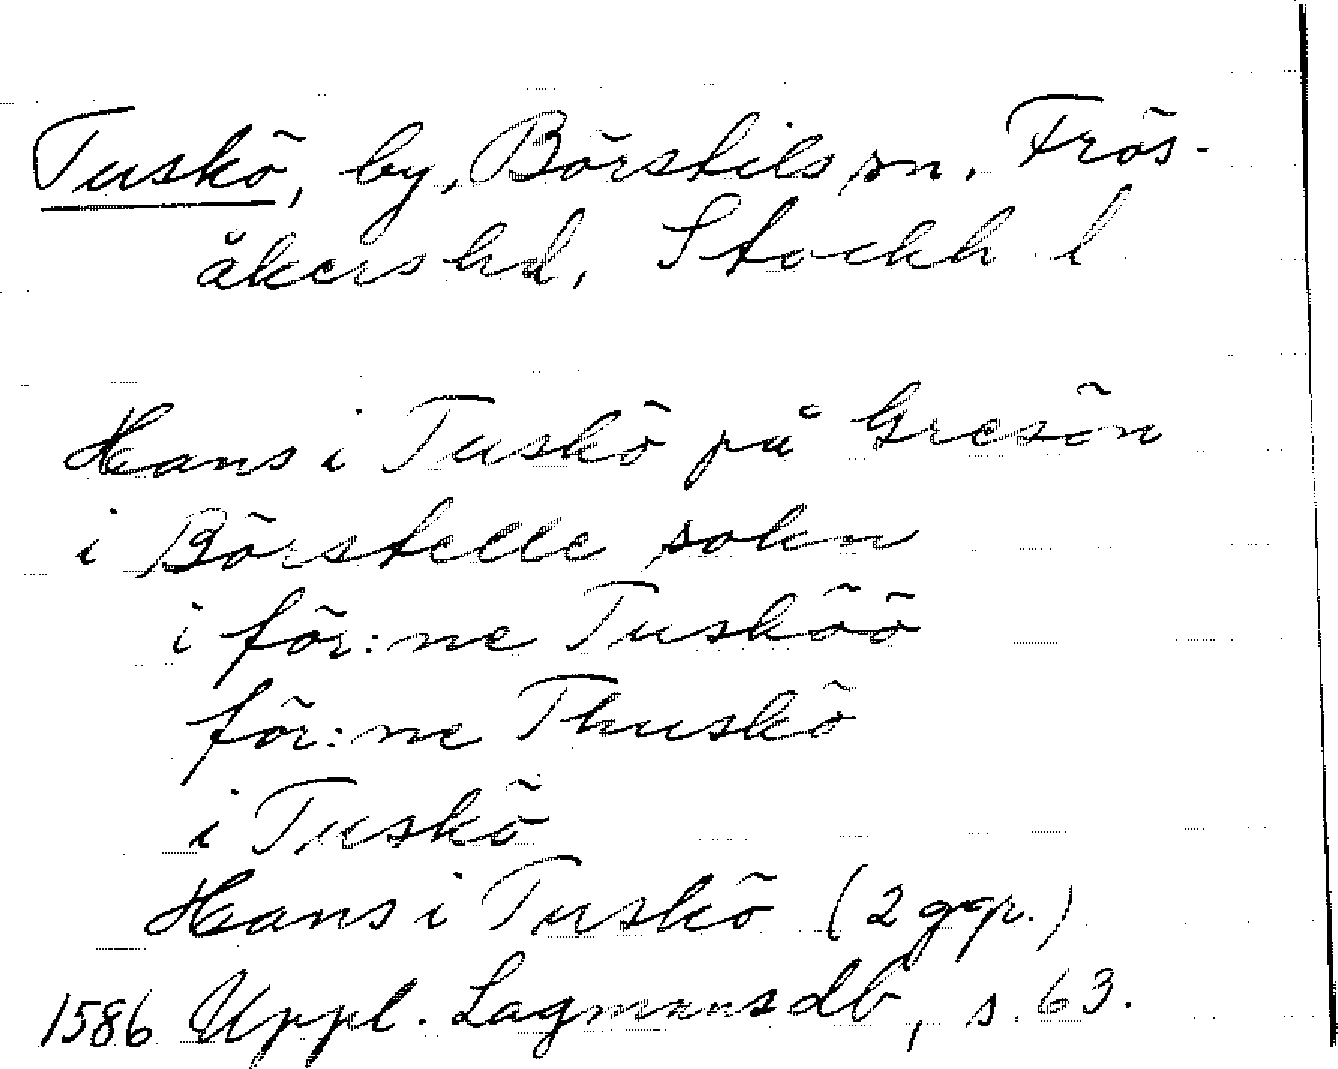 Tuskö, by, Börstils sn. Frös-
åkers hd, Stockh l
Hans i Tuskö på Gresön
i Börstelle sokn
i för:ne Tusköö
för:ne Thuskö
i Tuskö
Hans i Tuskö (2 ggr.)
1586 Uppl. Lagmansdb, s. 63.